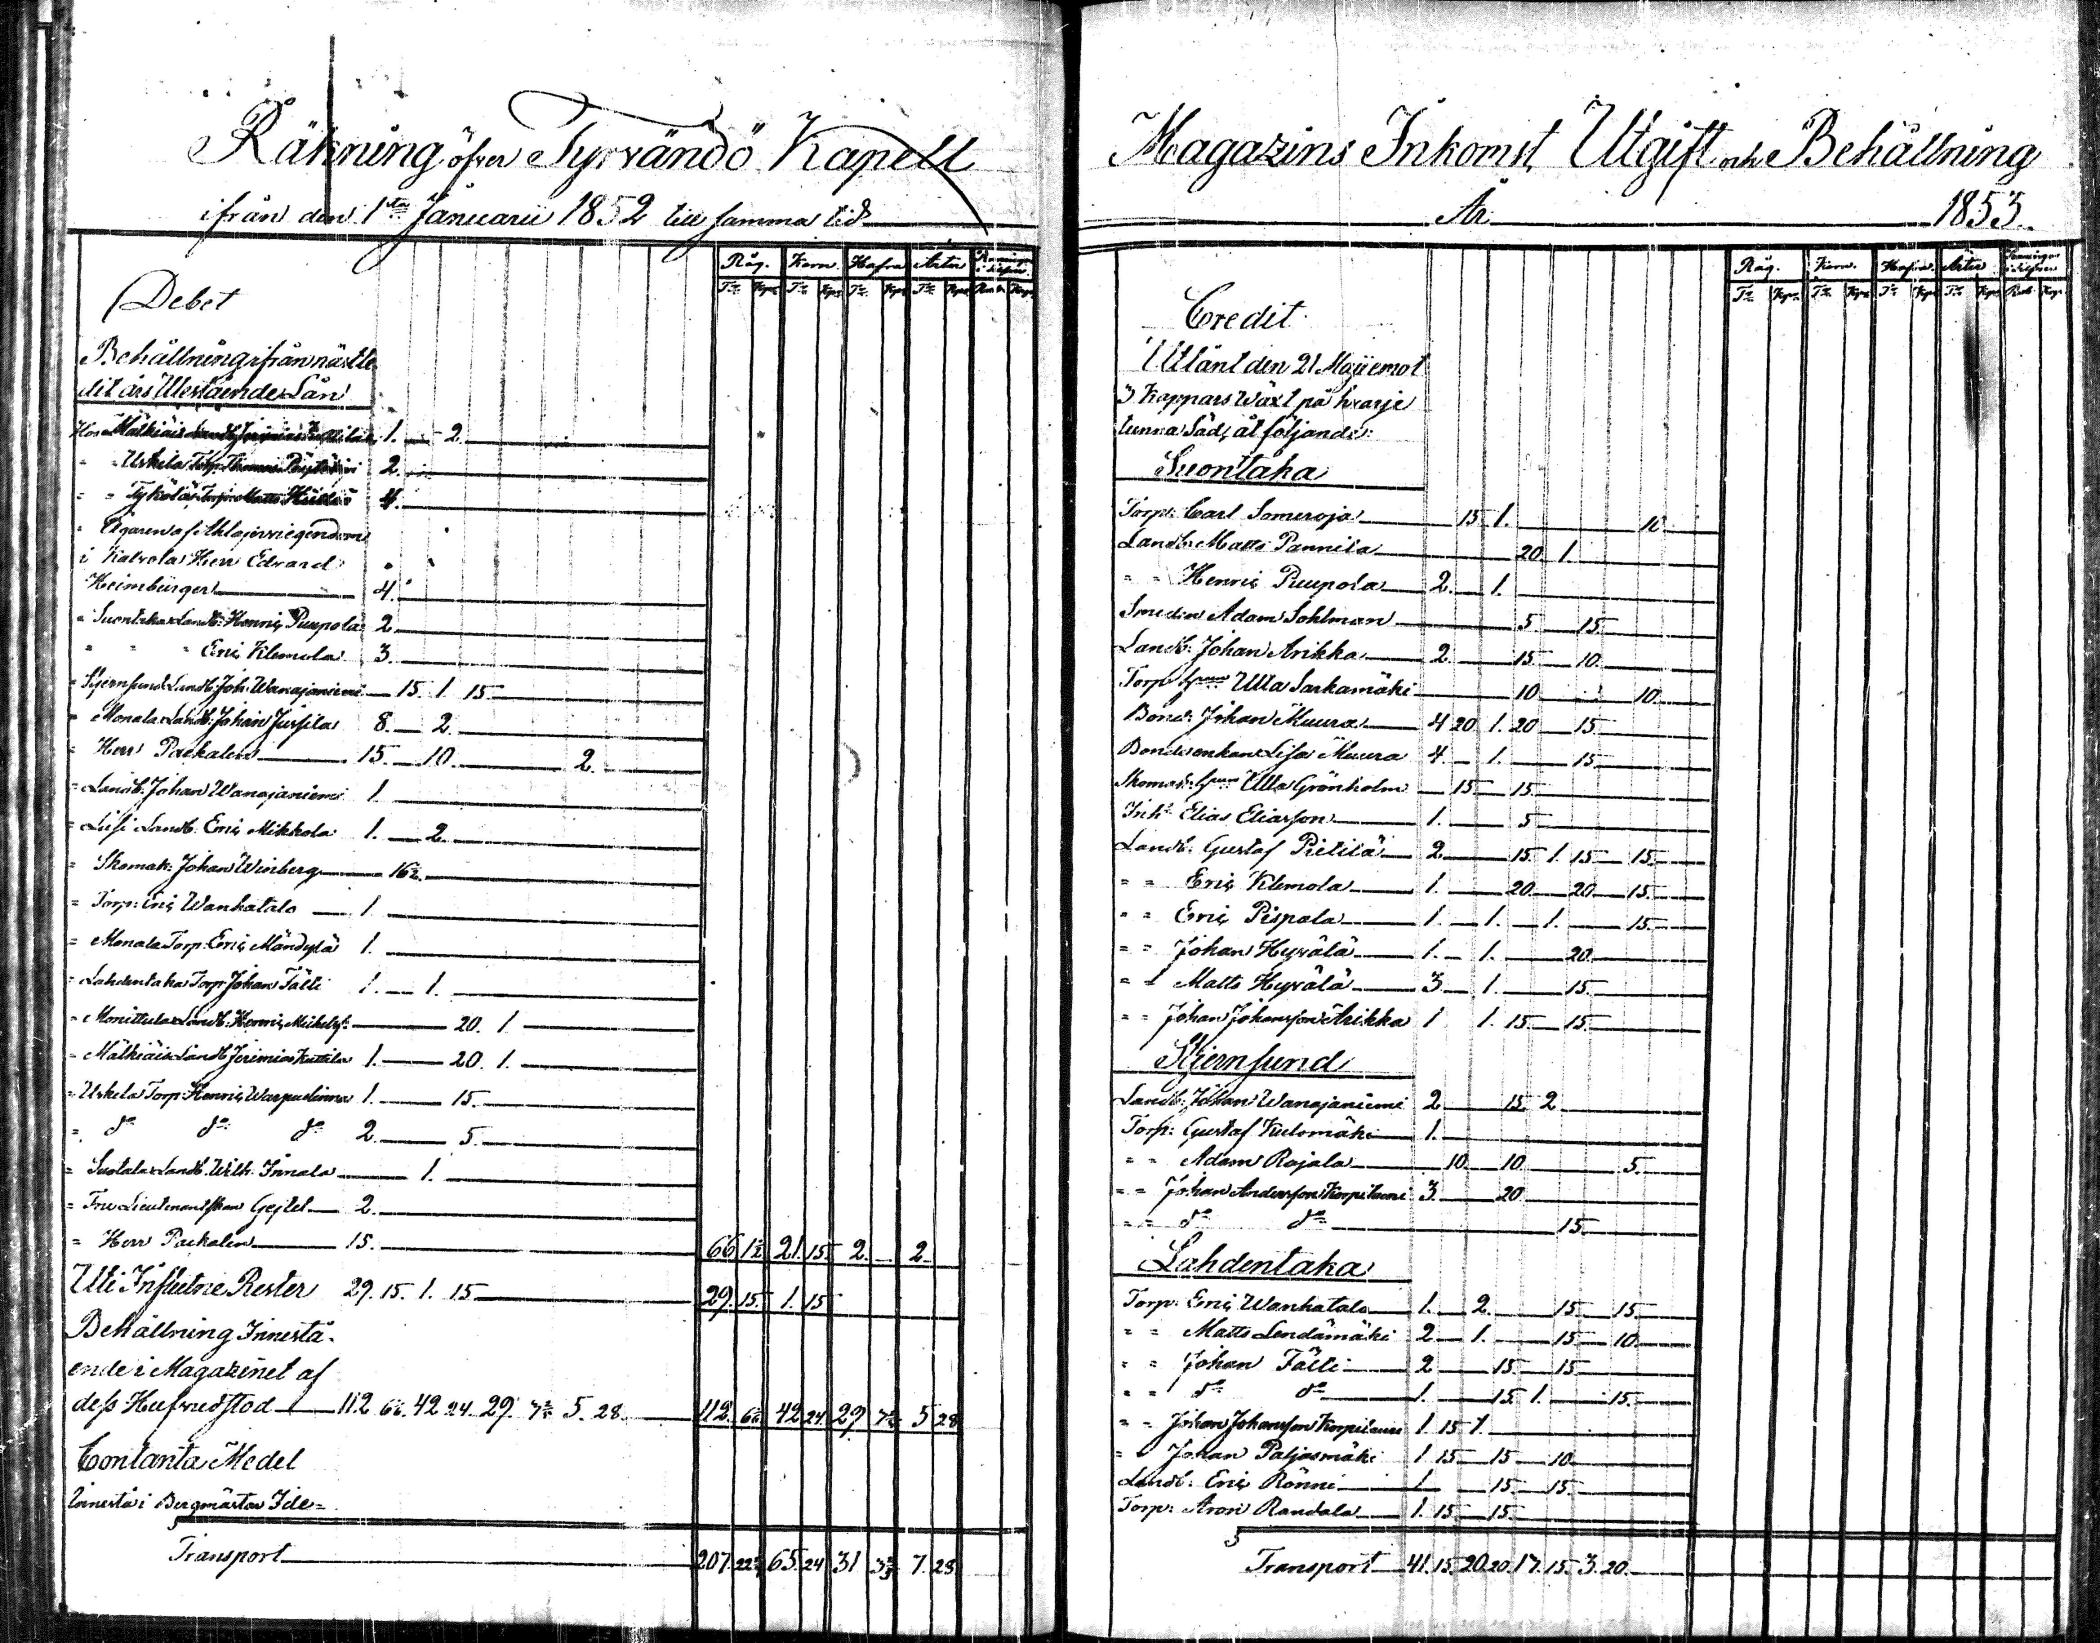 Räkning öfver Tyrvändö Kapell
ifrån den 1sta Januarii 1852 till samma tid
Råg. Korn. Hafra Ärter Penningar i Silfver
Tr. Kpr. Tr. Kpr. Tr. Kpr. Tr. Kpr. Rub. Kop.
Debet
Behållning ifrån nästle
dit års Utestående Lån
Hos Mälkiäis Landb. Jerimias Kuttila 1. 2.
" " Uskela Torp. Thomas 2.
" " Tykölä Torp. Matts 4.
" Ägaren af egendom
i Katvola Herr Edvard
Heimbürger 4.
" Suontaka Landb. Henric Puupola 2
" " " Eric Klemola 3.
" Stjernsund Landb. Joh. Wanajaniemi 15. 1. 15
" Monala Landb. Johan Jussila 8. 2.
" Herr Packalen 15. 10. 2.
" Landb. Johan Wanajaniemi 1.
" Landb. Eric Mikkola 1. 2.
" Skomak. Johan Winberg 16½.
" Torp. Eric Wanhatalo 1.
" Monala Torp. Eric Mändylä 1.
" Lahdentaka Torp. Johan Tälli 1. 1.
" Monittula Landb. Henric Michelss. 20. 1.
" Mälkiäis Landb. Jerimias Kuttila 1. 20. 1.
" Uskela Torp. Henric Warpuslinna 1. 15.
" do do do 2. 5.
" Suotala Landb. Wilh. Innala 1.
" Fru Lieutenantskan Gejtel 2.
" Herr Packalen 15. 66 1½ 21. 15. 2. 2.
Uti Influtne Rester 29. 15. 1. 15 29. 15. 1. 15
Behållning Innestå-
ende i Magazinet af
dess Hufvudstod 112 6⅔ 42 24. 29. 5. 28. 112. 6⅔ 42 24 29 5 28
Contanta Medel
Innestå i Bergmästar
Transport 207. 65. 24 31 7. 28
Magazins Inkomst, Utgift och Behållning
År 1853.
Råg. Korn. Hafra. Ärter Penningar i Silfver
Tr. Kpr. Tr. Kpr. Tr. Kpr. Tr. Kpr. Rub. Kop.
Credit
Utlånt den 21 Maji emot
3 Kappars Wäxt på hvarje
tunna Säd, åt följande:
Suontaka
Torp. Carl Someroja 15 1. 10
Landb. Matts Pannila 20 1.
" " Henric Puupola 2. 1.
Smeden Adam Sohlman 5. 15.
Landb. Johan Arikka 2. 15 10.
Torp. Ulla Sarkamäki 10 10.
Bond. Johan Muura 4 20 1. 20 15.
Bonde enkan Lisa Muura 4. 1. 15.
Skomak. Ulla Grönholm 15 15.
Inh. Elias Eliasson 1. 5
Landb. Gustaf Pietilä 2 15. 1. 15 15.
" " Eric Klemola 1. 20. 20 15.
" " Eric Pispala 1. 1. 1. 15.
" " Johan Hyvälä 1. 1. 20.
" " Matts Hyvälä 3. 1. 15.
" " Johan Johansson Arikka 1 1. 15 15.
Stjernsund
Landb. Johan Wanajaniemi 2 15. 2.
Torp. Gustaf Kulomäki 1.
" " Adam Rajala 10 10 5.
" " Johan Andersson Korpilaure 3. 20
" " do do 15.
Lahdentaka
Torp. Eric Wanhatalo 1. 2. 15 15
" " Matts Lendämäki 2 1. 15 10.
" " Johan Tälli 2 15. 15.
" " do do 1. 15. 1. 15.
" " Johan Johansson Korpilaure 1. 15 1.
" " Johan Paljasmäki 1 15 15 10
Landb. Eric Rönni 1 15. 15.
Torp. Aron Randala 1. 15 15
Transport 41. 15. 20. 20. 17. 15. 3. 20.